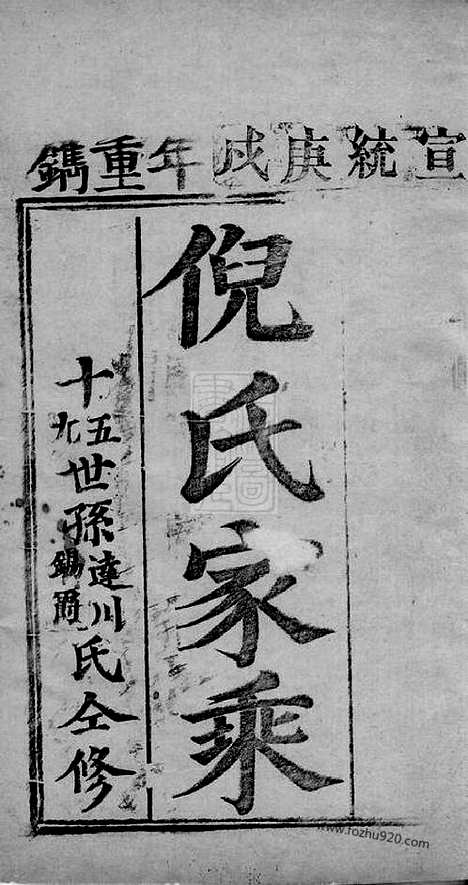 宣統庚戌年重鐫
倪氏家乘
十五九世孫達川錫爵氏仝修
www.fozhu920.com